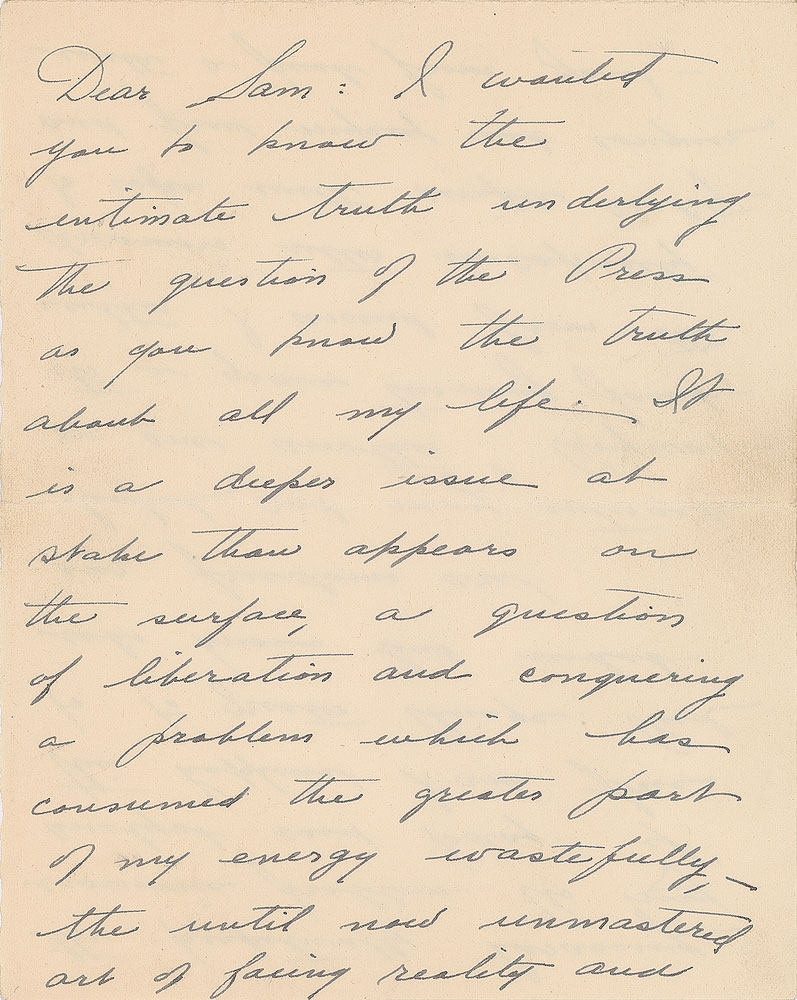 Dear Sam: I wanted
you to know the
intimate truth underlying
the question of the Press
as you know the truth
about all my life. It
is a deeper issue at
stake than appears on
the surface, a question
of liberation and conquering
a problem which has
consumed the greater part
of my energy wastefully, –
the until now unmastered
art of facing reality and